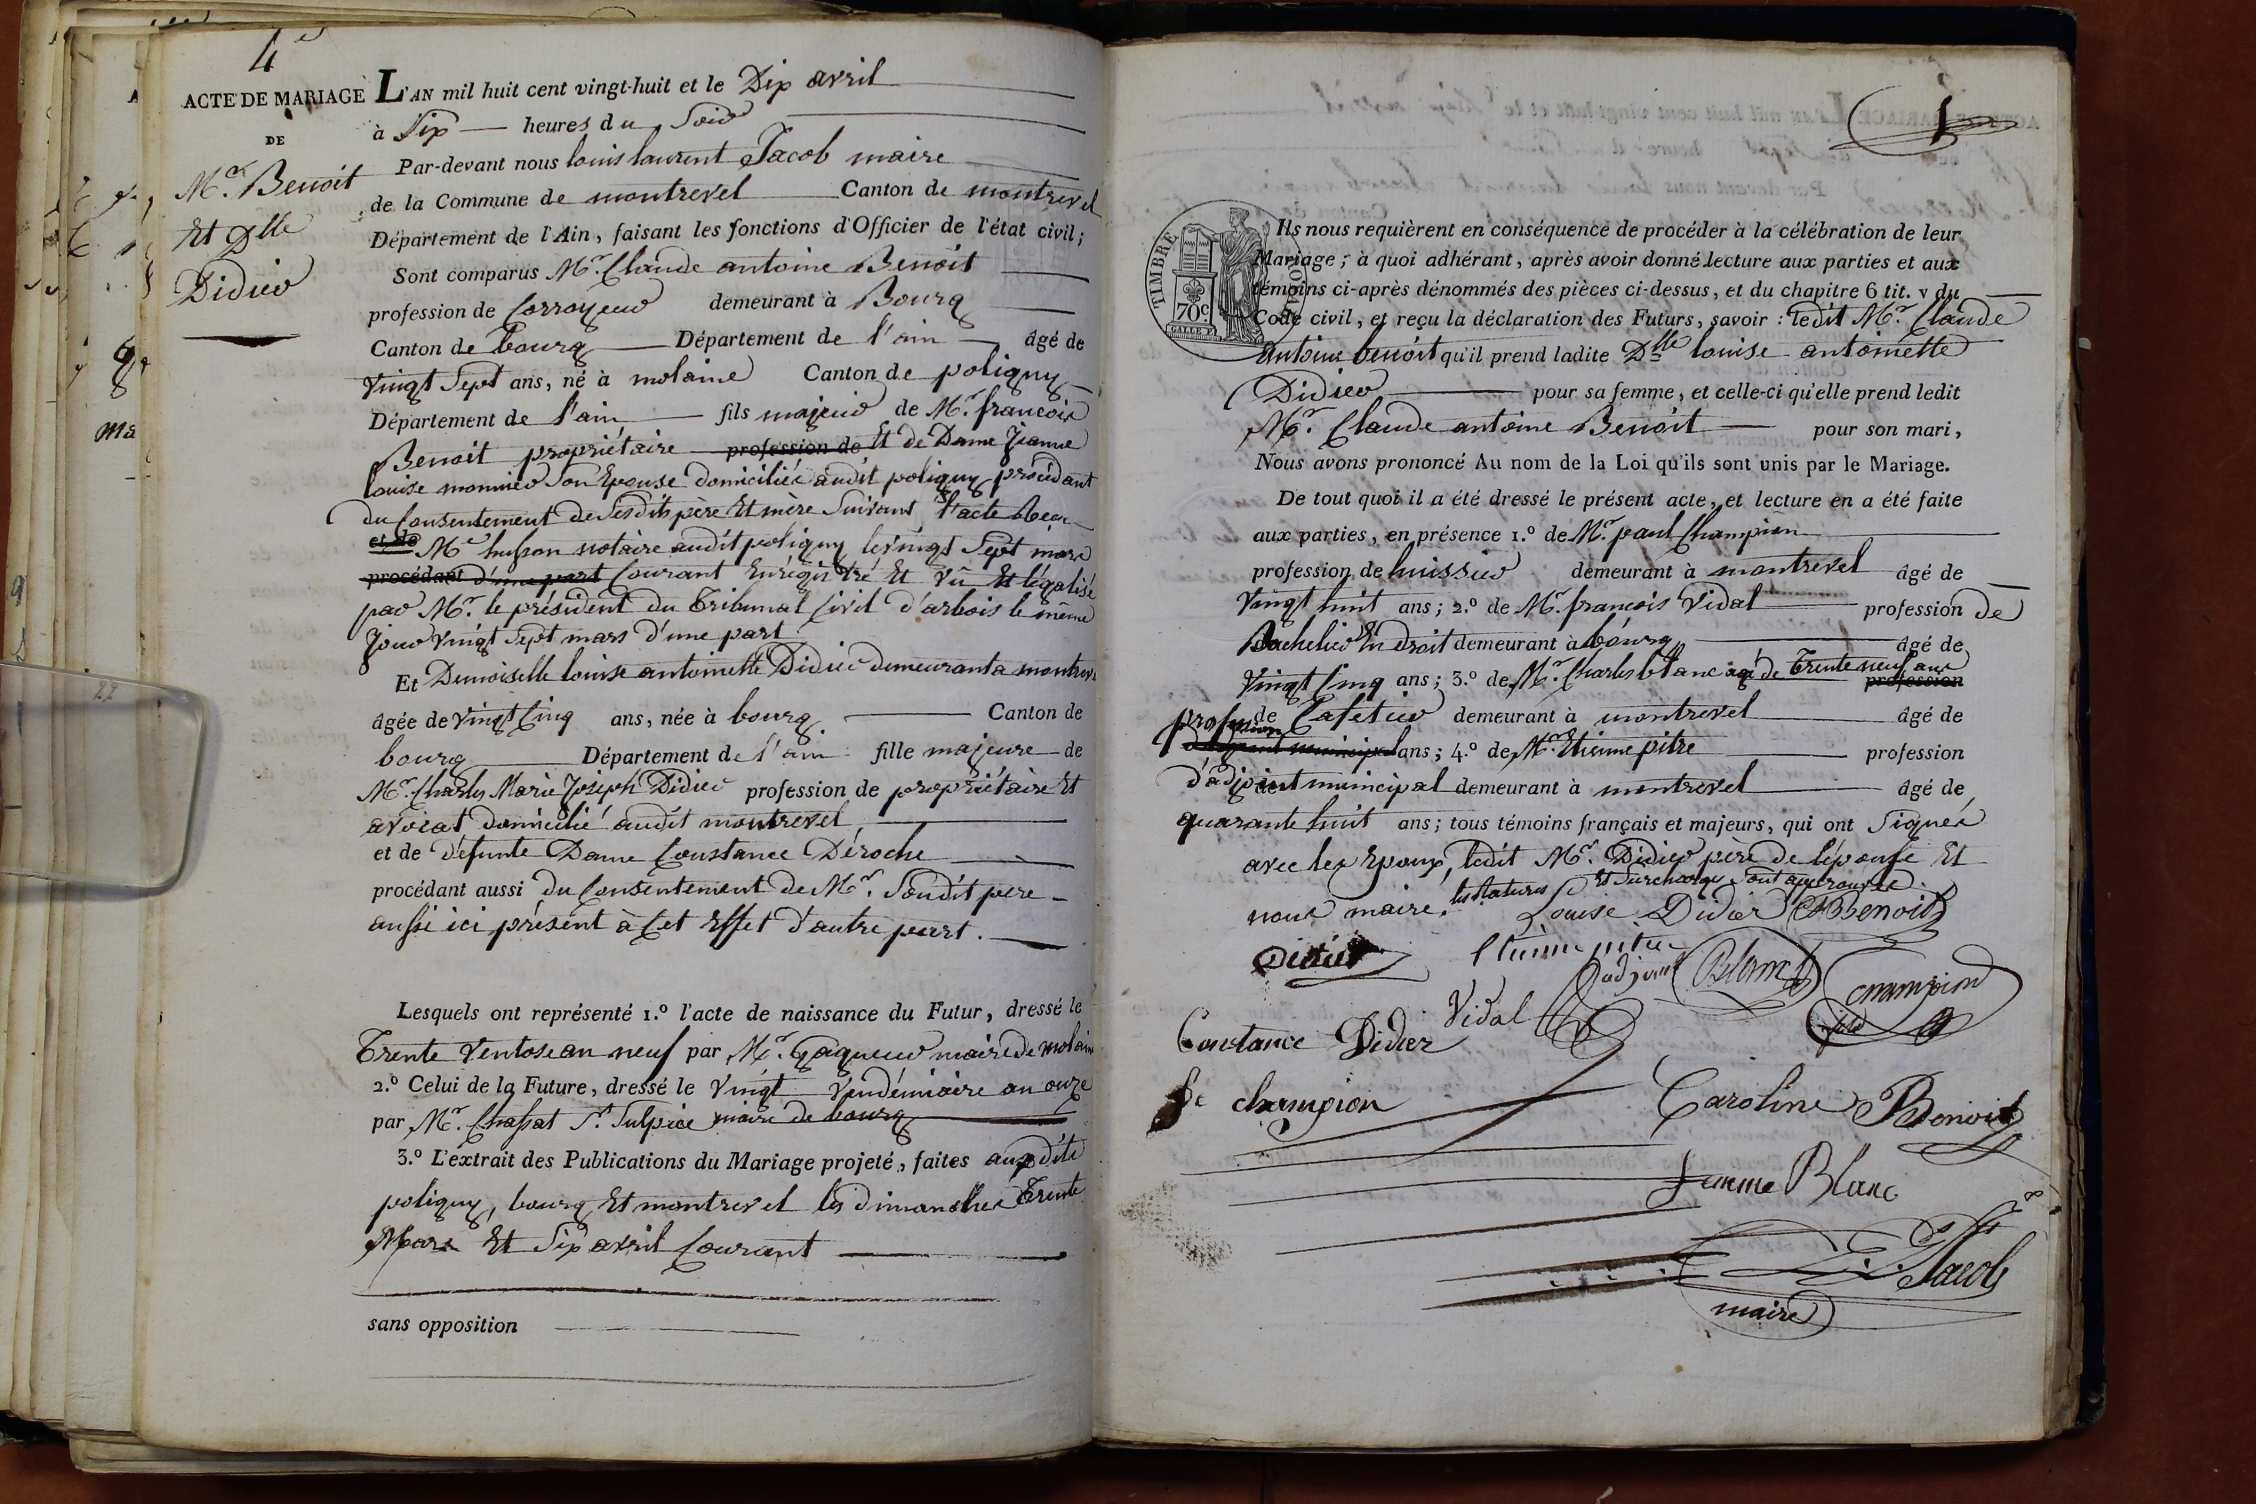 4e
ACTE DE MARIAGE
DE
Mr. Benoit
Et Dlle
Didier
L'AN mil huit cent vingt-huit et le Dix avril
à Six heures du Soir
Par-devant nous louis laurent Jacob maire
de la Commune de montrevel Canton de montrevel
Département de l'Ain, faisant les fonctions d'Officier de l'état civil;
Sont comparus Mr. Claude antoine Benoit
profession de Corroyeur demeurant à Bourg
Canton de bourg Département de l'ain âgé de
vingt Sept ans, né à molaine Canton de poligny
Département de l'ain fils majeur de Mr. francois
Benoit propriétaire profession de Et de Dame Jeanne
louise monnier Son Epouse domiciliés audit poligny procédant
du Consentement de Sesdits père Et mère Suivant l'acte Recu
et de Me husson notaire audit poligny le vingt Sept mars
procédant d'une part Courant Enrégistré Et vû Et légalisé
par Mr. le président du Tribunal Civil d'arbois le même
Jour vingt Sept mars d'une part
Et Demoiselle louise antoinette Didier demeurant a montrevel
âgée de vingt Cinq ans, née à bourg Canton de
bourg Département de l'ain fille majeure de
Mr. Charles Marie Joseph Didier profession de propriétaire Et
avocat domicilié audit montrevel
et de défunte Dame Constance Déroche
procédant aussi du Consentement de Mr. Soudit pere
aussi ici présent à Cet Effet d'autre part.
Lesquels ont représenté 1.º l'acte de naissance du Futur, dressé le
Trente Ventose an neuf par Mr. Gagneur maire de molain
2.º Celui de la Future, dressé le vingt vendémiaire an onze
par Mr. Chassat St. Sulpice maire de bourg
3.º L'extrait des Publications du Mariage projeté, faites auxdits
poligny, bourg Et montrevel les dimanches Trente
Mars Et Six avril Courant
sans opposition
TIMBRE ROYAL
70c
Ils nous requièrent en conséquence de procéder à la célébration de leur
Mariage; à quoi adhérant, après avoir donné lecture aux parties et aux
témoins ci-après dénommés des pièces ci-dessus, et du chapitre 6 tit. v du
Code civil, et reçu la déclaration des Futurs, savoir: ledit Mr. Claude
Antoine benoit qu'il prend ladite Dlle louise antoinette
Didier pour sa femme, et celle-ci qu'elle prend ledit
Mr. Claude antoine Benoit pour son mari,
Nous avons prononcé Au nom de la Loi qu'ils sont unis par le Mariage.
De tout quoi il a été dressé le présent acte, et lecture en a été faite
aux parties, en présence 1.º de Mr. paul Champion
profession de huissier demeurant à montrevel âgé de
vingt huit ans; 2.º de Mr. francois Vidal profession de
Bachelier En droit demeurant à bourg âgé de
vingt Cinq ans; 3.º de Mr. Charles blanc agé de Trente neuf ans profession
profession de Cafetier demeurant à montrevel âgé de
ans; 4.º de Mr. Etienne pitre profession
d'adjoint municipal demeurant à montrevel âgé de
quarante huit ans; tous témoins français et majeurs, qui ont Signés
avec les Epoux, ledit Mr. Didier père de lépouse Et
nous maire. les Ratures Et Surcharges Sont approuvées
Louise Didier CABenoit
Didier Etienne pitre
adjoint Blanc Champion
Vidal
Constance Didier
fe champion Caroline Benoit
femme Blanc
L. L. Jacob
maire